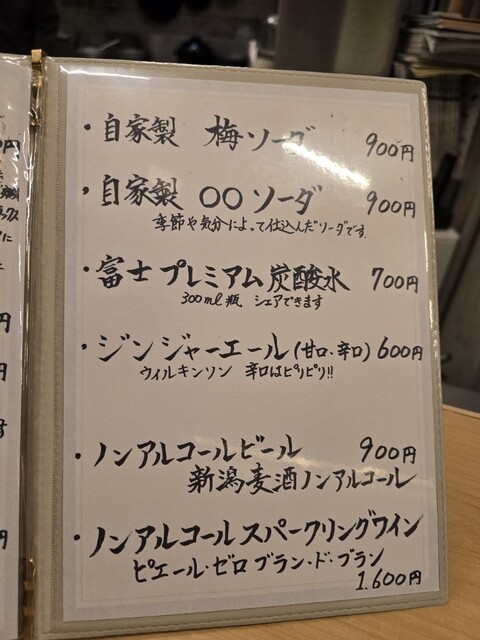 ・自家製 梅ソーダ 900円
・自家製 〇〇ソーダ 900円
季節や気分によって仕込んだソーダです。
・富士プレミアム炭酸水 700円
300ml瓶 シェアできます
・ジンジャーエール(甘口・辛口) 600円
ウィルキンソン 辛口はピリピリ!!
・ノンアルコールビール 900円
新潟麦酒ノンアルコール
・ノンアルコールスパークリングワイン
ピエール・ゼロ ブラン・ド・ブラン
1.600円